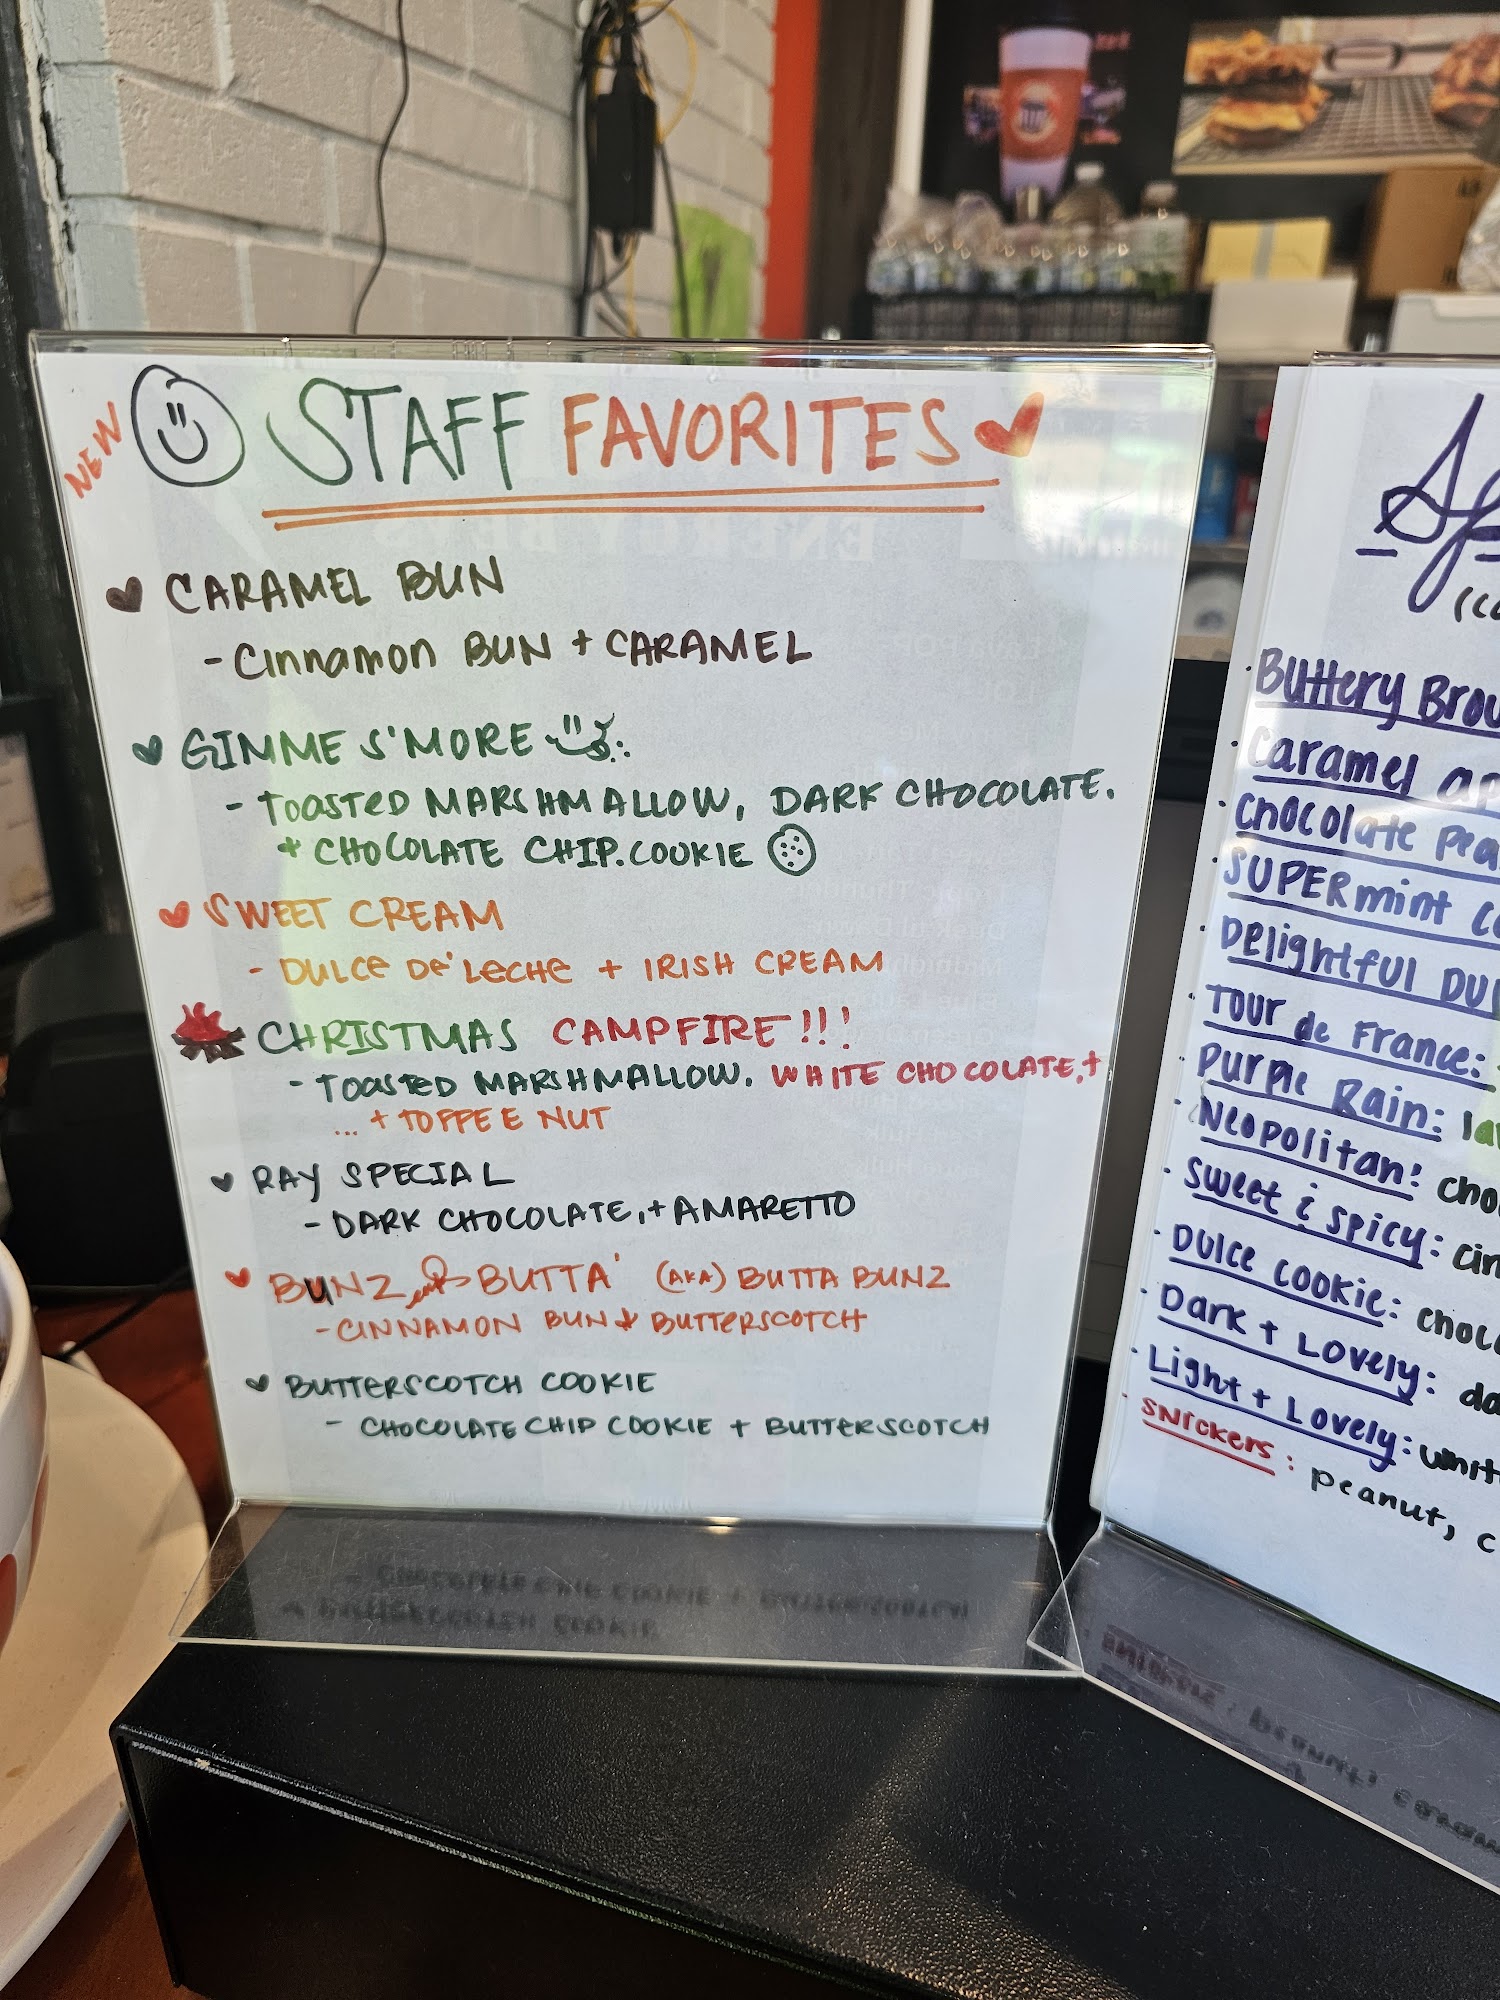 NEW
STAFF FAVORITES
CARAMEL BUN
- Cinnamon BUN + CARAMEL
GIMME S'MORE
- TOASTED MARSHMALLOW, DARK CHOCOLATE,
+ CHOCOLATE CHIP.COOKIE
SWEET CREAM
- DULCE DE' LECHE + IRISH CREAM
CHRISTMAS CAMPFIRE!!!
- TOASTED MARSHMALLOW, WHITE CHOCOLATE,+
... + TOFFEE NUT
RAY SPECIAL
- DARK CHOCOLATE,+ AMARETTO
BUNZ BUTTA' (AKA) BUTTA BUNZ
- CINNAMON BUN + BUTTERSCOTCH
BUTTERSCOTCH COOKIE
- CHOCOLATE CHIP COOKIE + BUTTERSCOTCH
Buttery
Caramel
Chocolate
SUPERmint
Delightful
Tour de France:
Purple Rain:
Neopolitan:
Sweet & Spicy:
Dulce Cookie:
Dark + Lovely:
Light + Lovely:
Snickers: peanut,